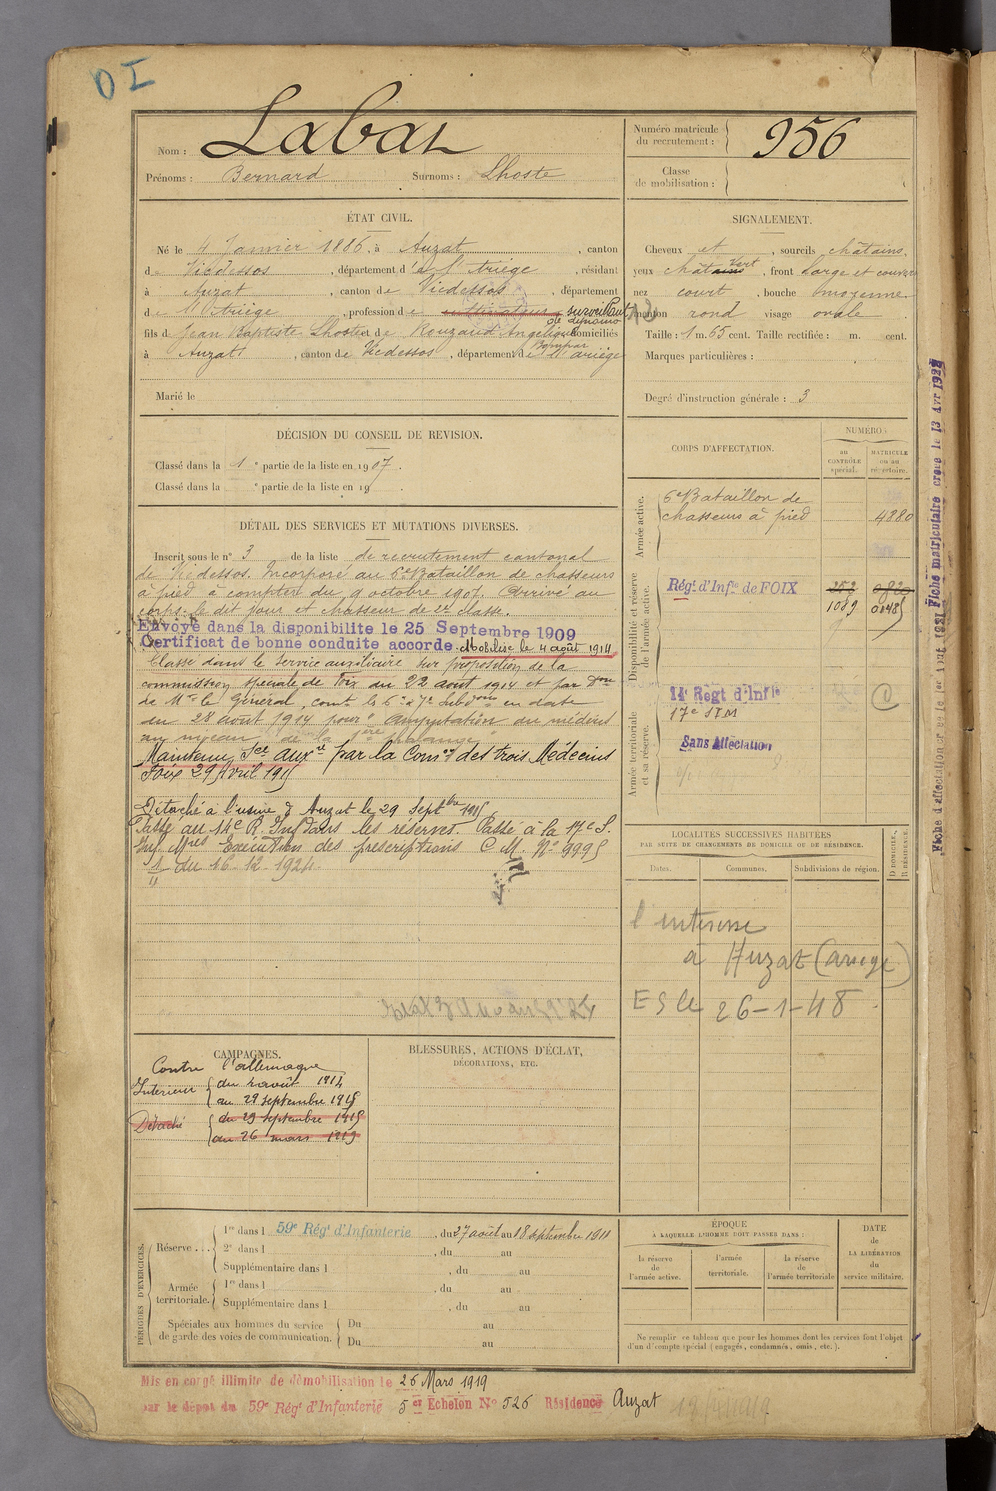 DI
Nom : Labat
Prénoms : Bernard Surnoms : Lhoste
Numéro matricule du recrutement : 956
Classe de mobilisation :
ÉTAT CIVIL.
Né le 4 Janvier 1886, à Auzat, canton
de Vicdessos, département de l'Ariège, résidant
à Auzat, canton de Vicdessos, département
de l'Ariège, profession de cultivateur surveillant
de dynamo
fils de Jean Baptiste Lhoste et de Rouzaud Angélique domiciliés
à Auzat, canton de Vicdessos, département de l'Ariège
Marié le
SIGNALEMENT.
Cheveux et, sourcils châtains,
yeux châtains vert, front large et couvert
nez court, bouche moyenne.
menton rond visage ovale
Taille : 1 m. 65 cent. Taille rectifiée : m. cent.
Marques particulières :
Degré d'instruction générale : 3
DÉCISION DU CONSEIL DE REVISION.
Classé dans la 1e partie de la liste en 1907.
Classé dans la e partie de la liste en 19
DÉTAIL DES SERVICES ET MUTATIONS DIVERSES.
Inscrit sous le n° 3 de la liste de recrutement cantonal
de Vicdessos. Incorporé au 6e Bataillon de chasseurs
à pied à compter du 9 octobre 1907. Arrivé au
corps le dit jour et chasseur de 2e classe.
Envoyé dans la disponibilite le 25 Septembre 1909
Certificat de bonne conduite accorde. Mobilisé le 4 août 1914
Classé dans le service auxiliaire sur proposition de la
commission spéciale de Foix du 22 août 1914 et par Don
de Mr le Général, comt la 6e 7e Subdon en date
du 28 août 1914 pour "amputation du médius
au niveau de la 1ère phalange"
Maintenu Sce auxre par la Comon des trois Médecins
Foix 29 Avril 1915
Détaché à l'usine d'Auzat le 29 Septbre 1915
Passé au 14e R. Inf dans les réserves. Passé à la 17e S.
Inf Mres Exécution des prescriptions C M. N° 9995
1/11 du 16-12-1924.
CORPS D'AFFECTATION.
NUMÉRO
au CONTRÔLE spécial.
MATRICULE ou au répertoire.
Armée active.
6e Bataillon de
chasseurs à pied 4880
Disponibilité et réserve de l'armée active.
Régt. d'Infie de FOIX
1089
Armée territoriale et sa réserve.
14e Régt d'Infie
17e SIM
Sans Affectation
Fiche matriculaire créée le 13 Avr 1922
LOCALITÉS SUCCESSIVES HABITÉES
PAR SUITE DE CHANGEMENTS DE DOMICILE OU DE RÉSIDENCE.
Dates. Communes. Subdivisions de région. D DOMICILE, R RÉSIDENCE.
à Auzat (Ariège)
26-1-48
CAMPAGNES.
Contre l'allemagne
Intérieur du 4 août 1914
au 29 septembre 1915
Détaché du 29 septembre 1915
au 26 mars 1919
BLESSURES, ACTIONS D'ÉCLAT,
DÉCORATIONS, ETC.
PÉRIODES D'EXERCICES.
Réserve ... 1re dans l 59e Régt d'Infanterie, du 27 août au 18 septembre 1911
2e dans l , du au
Supplémentaire dans l , du au
Armée territoriale. 1re dans l , du au
Supplémentaire dans l , du au
Spéciales aux hommes du service de garde des voies de communication. Du au
Du au
ÉPOQUE
À LAQUELLE L'HOMME DOIT PASSER DANS :
la réserve de l'armée active.
l'armée territoriale.
la réserve de l'armée territoriale
DATE de LA LIBÉRATION du service militaire.
Ne remplir ce tableau que pour les hommes dont les services font l'objet
d'un décompte spécial (engagés, condamnés, omis, etc.).
Mis en congé illimité de démobilisation le 26 Mars 1919
par le dépôt du 59e Régt d'Infanterie 5er Echelon N° 526 Résidence Auzat